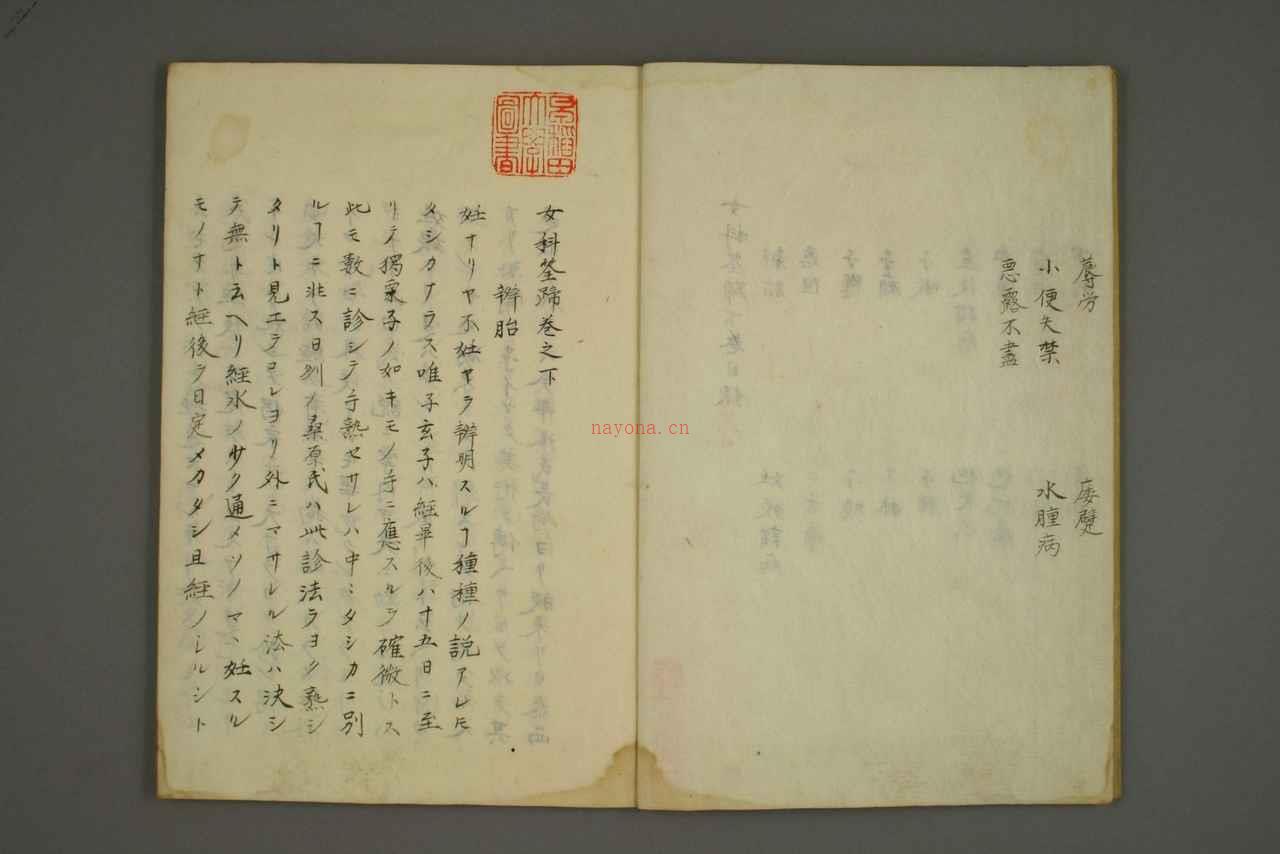 蓐労 痿躄
小便失禁 水腫病
悪露不盡
早稲田大學圖書
女科筌蹄巻之下
辨胎
妊ナリヤ不妊ヤラ辨明スルヿ種種ノ説アレ𪜈
タシカナラス唯子玄子ハ経畢後ハ十五日ニ至
リテ獨栗子ノ如キモノ手ニ應スルヲ確徴トス
此モ數ニ診シテ手熟セサレハ中〻タシカニ別
ルヿニ非ス日州ノ桑原氏ハ此診法ヲヨク熟シ
タリト見エテコレヨリ外ニマサレル法ハ决シ
テ無ト云ヘリ経水ノ少ク通メソノマヽ妊スル
モノナト経後ヲ日定メカタシ且経ノシルシト
nayona.cn